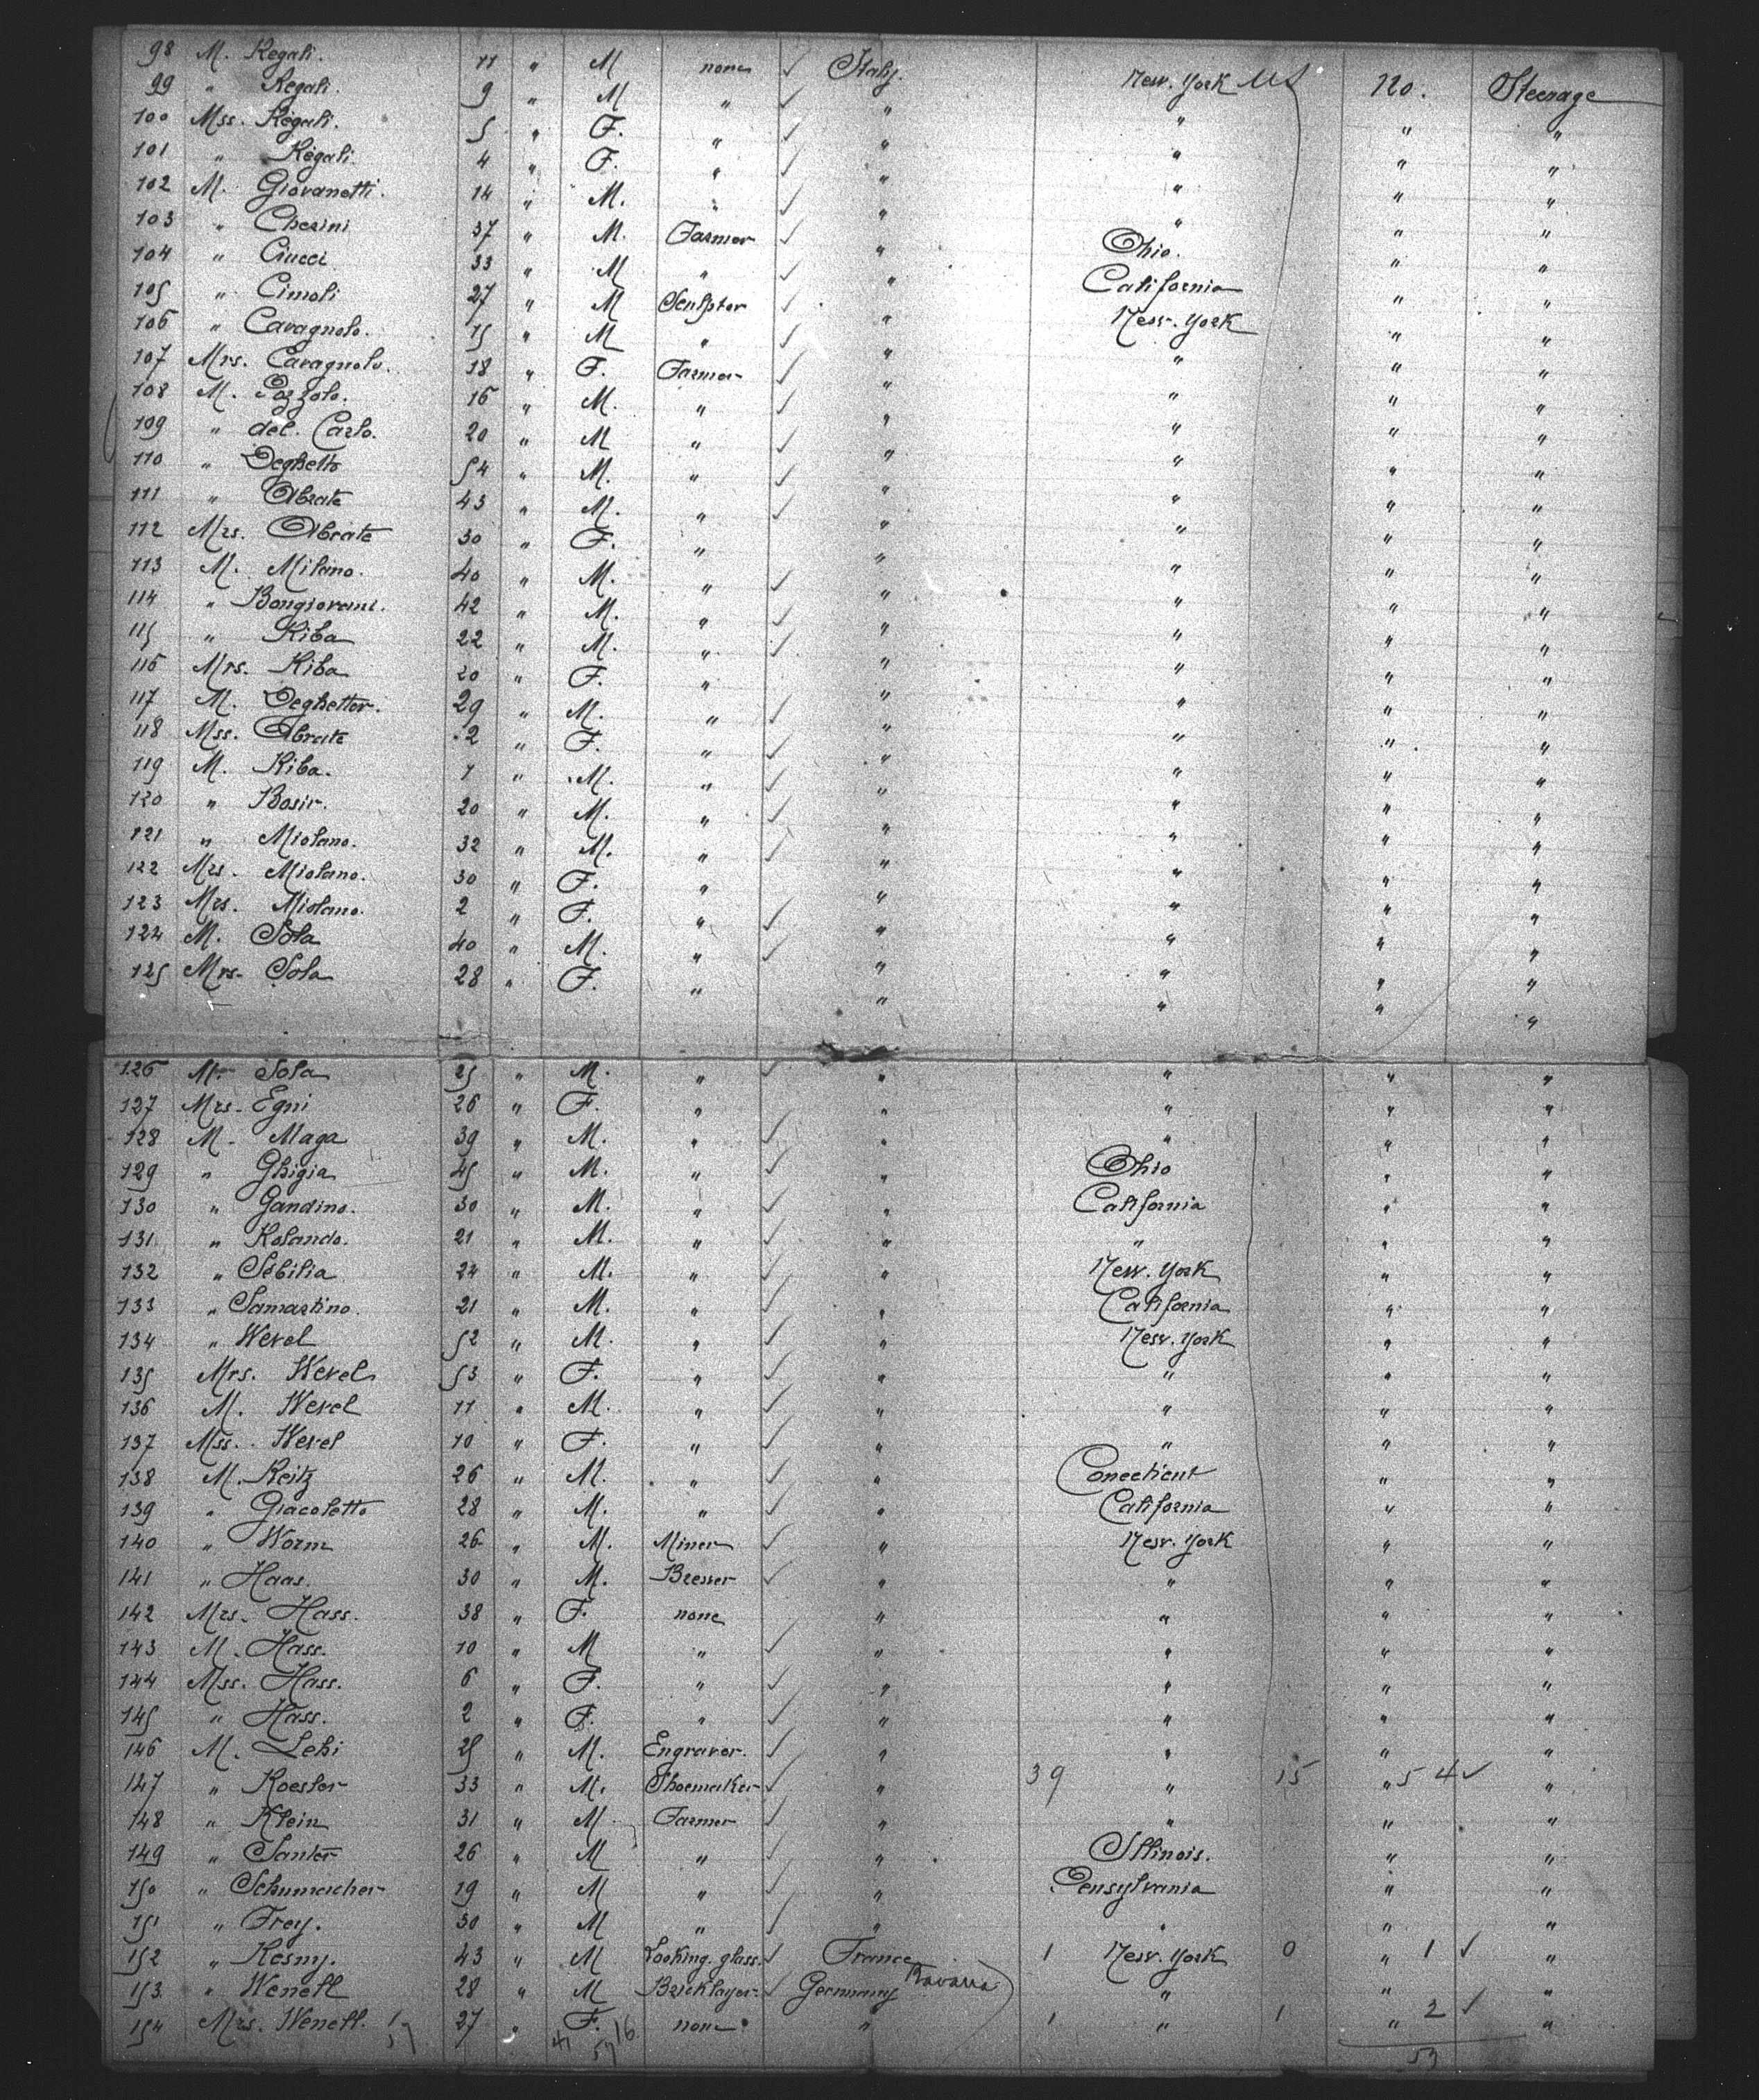 98 M. Regali. 11 " M none ✓ Italy. New. York US No. Steerage
99 " Regali. 9 " M " ✓ " " " "
100 Mss. Regali. 5 " F. " ✓ " " " "
101 " Regali. 4 " F. " ✓ " " " "
102 M. Giovanetti. 14 " M. " ✓ " " " "
103 " Cherini 37 " M. Farmer ✓ " Ohio. " "
104 " Ciucci 33 " M " ✓ " California " "
105 " Cimoli 27 " M Sculptor ✓ " New. York " "
106 " Cavagnolo. 15 " M " ✓ " " " "
107 Mrs. Cavagnolo. 18 " F. Farmer ✓ " " " "
108 M. Pozzolo. 16 " M. " ✓ " " " "
109 " del. Carlo. 20 " M " ✓ " " " "
110 " Deghetto 54 " M. " ✓ " " " "
111 " Abrate 43 " M. " ✓ " " " "
112 Mrs. Abrate 30 " F. " " " " "
113 M. Milano. 40 " M. " ✓ " " " "
114 " Bongiovani. 42 " M. " ✓ " " " "
115 " Riba 22 " M. " ✓ " " " "
116 Mrs. Riba 20 " F. " " " " "
117 M. Deghetter. 29 " M. " ✓ " " " "
118 Mss. Abrate 2 " F. " ✓ " " " "
119 M. Riba. 1 " M. " ✓ " " " "
120 " Bosir. 20 " M. " ✓ " " " "
121 " Miolano. 32 " M. " ✓ " " " "
122 Mrs. Miolano. 30 " F. " " " " "
123 Mrs. Miolano. 2 " F. " ✓ " " " "
124 M. Sola 40 " M. " ✓ " " " "
125 Mrs. Sola 28 " F. " " " " "
126 M. Sola 25 " M. " ✓ " " " "
127 Mrs. Egni 26 " F. " " " " "
128 M. Maga 39 " M. " ✓ " " " "
129 " Ghigia 45 " M. " ✓ " Ohio " "
130 " Gandino. 30 " M. " ✓ " California " "
131 " Rolando. 21 " M. " ✓ " " " "
132 " Sebilia 24 " M. " ✓ " New. York " "
133 " Samartino. 21 " M. " ✓ " California " "
134 " Wevel 52 " M. " ✓ " New. York " "
135 Mrs. Wevel 53 " F. " ✓ " " " "
136 M. Wevel 11 " M. " ✓ " " " "
137 Mss. Wevel 10 " F. " ✓ " " " "
138 M. Reitz 26 " M. " ✓ " Conecticut " "
139 " Giacoletto 28 " M. " ✓ " California " "
140 " Worm 26 " M. Miner ✓ " New. York " "
141 " Haas. 30 " M. Brewer ✓ " " " "
142 Mrs. Hass. 38 " F. none " " " "
143 M. Hass. 10 " M " ✓ " " " "
144 Mss. Hass. 6 " F. " ✓ " " " "
145 " Hass. 2 " F. " ✓ " " " "
146 M. Lehi 25 " M. Engraver. ✓ " " " "
147 " Koesler 33 " M. Shoemaker ✓ " 39 " 15 " 54 ✓ "
148 " Klein 31 " M. Farmer ✓ " " " "
149 " Santer 26 " M " ✓ " Illinois. " "
150 " Schumacher 19 " M " ✓ " Pensylvania " "
151 " Frey. 30 " M " ✓ " " " "
152 " Resmy. 43 " M Looking. glass. ✓ France 1 New. York 0 " 1 ✓ "
153 " Wenell 28 " M Bricklayer ✓ Germany Bavaria " " "
154 Mrs. Wenell. 27 " F. none " 1 " 1 " 2 ✓ "
57 41 57 16 57